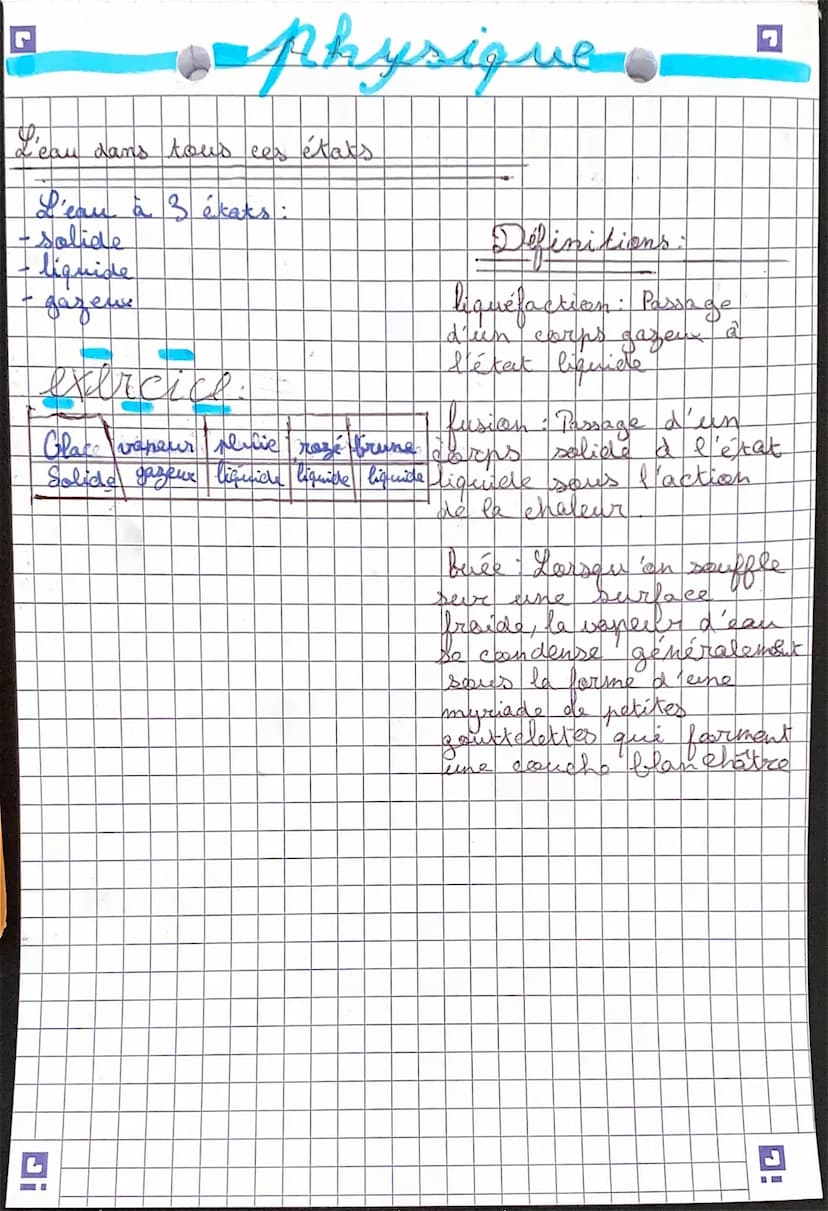 physique
L'eau dans tous ces états
L'eau à 3 états :
- solide
- liquide
- gazeux
exercice :
Glac vapeur pluie rozé brume
Solide gazeux liquide liquide liquide
Définitions :
liquéfaction : Passage
d'un corps gazeux à
l'état liquide
fusion : Passage d'un
corps solide à l'état
liquide sous l'action
de la chaleur.
Buée : Lorsqu'on souffle
sur une surface
froide, la vapeur d'eau
se condense généralement
sous la forme d'une
myriade de petites
gouttelettes qui forment
une couche blanchâtre